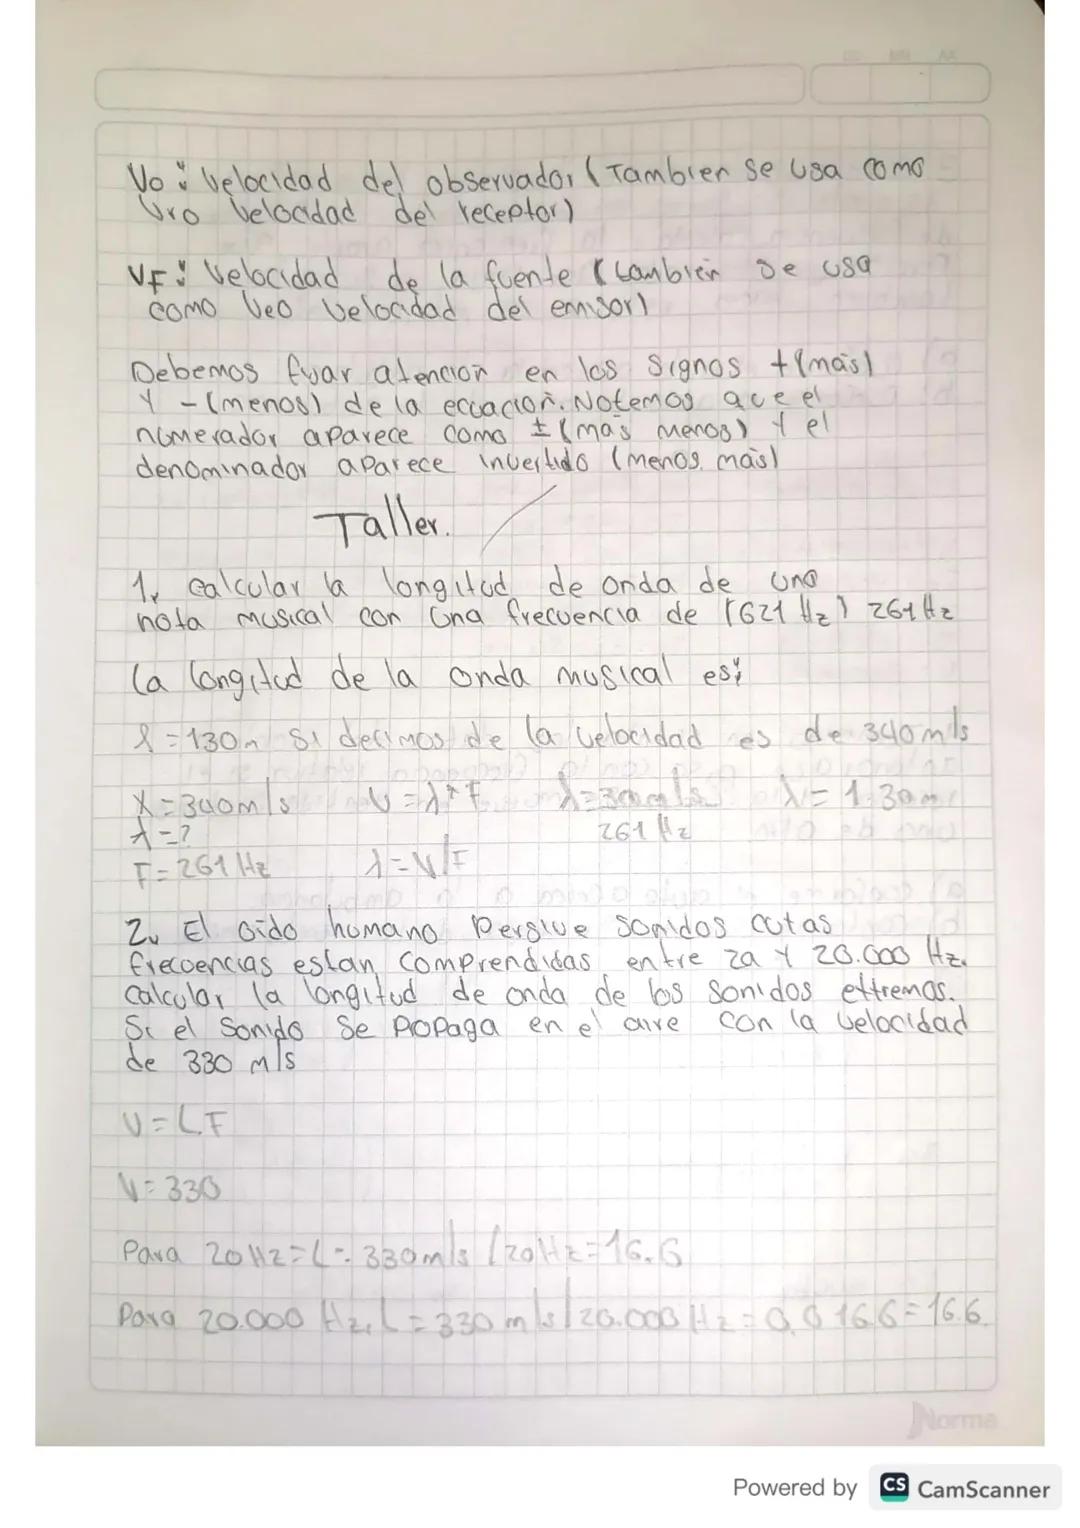 Vo: Velocidad del observador (Tambien se usa como
Vro Velocidad del receptor)
VF: Velocidad de la fuente (tambien se usa
como Veo Velocidad del emisor)
Debemos fijar atencion en los signos +(mas)
Y -(menos) de la ecuacion. Notemos que el
numerador aparece como ±(mas menos) Y el
denominador aparece invertido (menos, mas)
Taller.
1, calcular la longitud de onda de una
nota musical con una frecuencia de (621 Hz) 261 Hz
La longitud de la onda musical es:
λ=130m Si decimos de la velocidad es de 340m/s
X=340m/s V=λ*F λ=340m/s λ=1.30m
λ=? 261 Hz
F=261 Hz λ=V/F
2. El oido humano Persive Sonidos cutas
frecuencias estan comprendidas entre 20 Y 20.000 Hz.
Calcular la longitud de onda de los sonidos extremos.
Si el Sonido Se Propaga en el aire con la velocidad
de 330 m/s
V=LF
V=330
Para 20Hz=L=330m/s /20Hz=16.6
Para 20.000 Hz, L=330 m/s/20.000 Hz=0,0166=16.6.
Norma
Powered by CS CamScanner